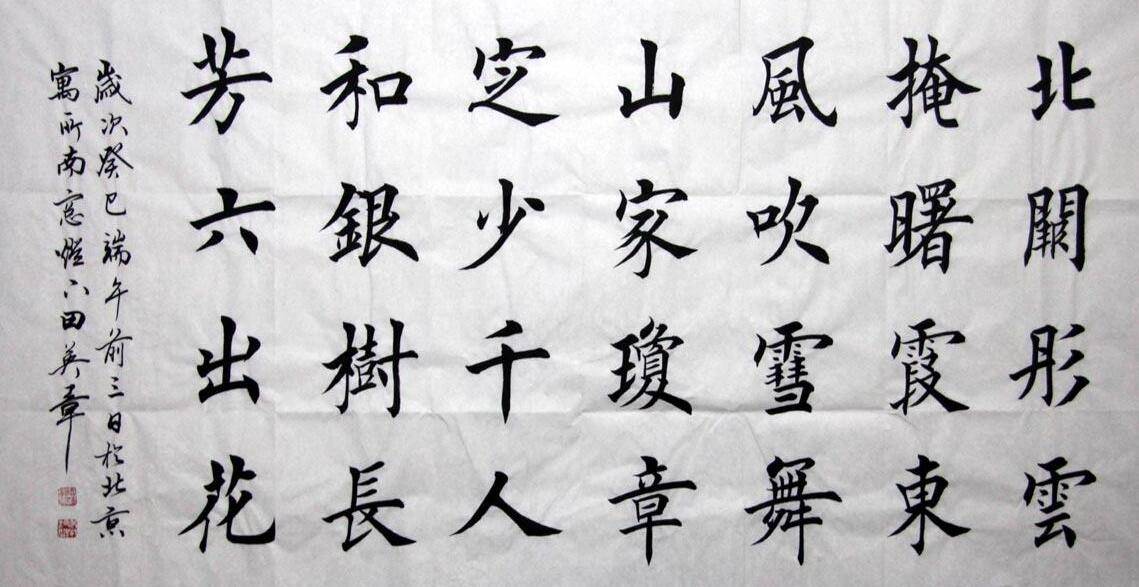 北闕彤雲
掩曙霞東
風吹雪舞
山家瓊章
定少千人
和銀樹長
芳六出花
歲次癸巳端午前三日於北京
寓所南窓燈下田英章